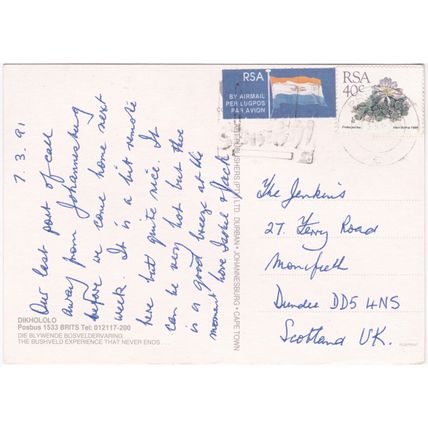 7.3.91
Our last port of call
away from Johannesburg
before we come home next
week. It is a bit remote
here but quite nice. It
can be very hot but there
is a good breeze at the
moment. love Isobel & Jack
DIKHOLOLO
Posbus 1533 BRITS Tel: 012117-200
DIE BLYWENDE BOSVELDERVARING.
THE BUSHVELD EXPERIENCE THAT NEVER ENDS . . .
PUBLISHERS (PTY) LTD. DURBAN • JOHANNESBURG • CAPE TOWN
RSA
BY AIRMAIL
PER LUGPOS
PAR AVION
RSA
40c
The Jenkins
27. Ferry Road
Monifieth
Dundee DD5 4NS
Scotland UK.